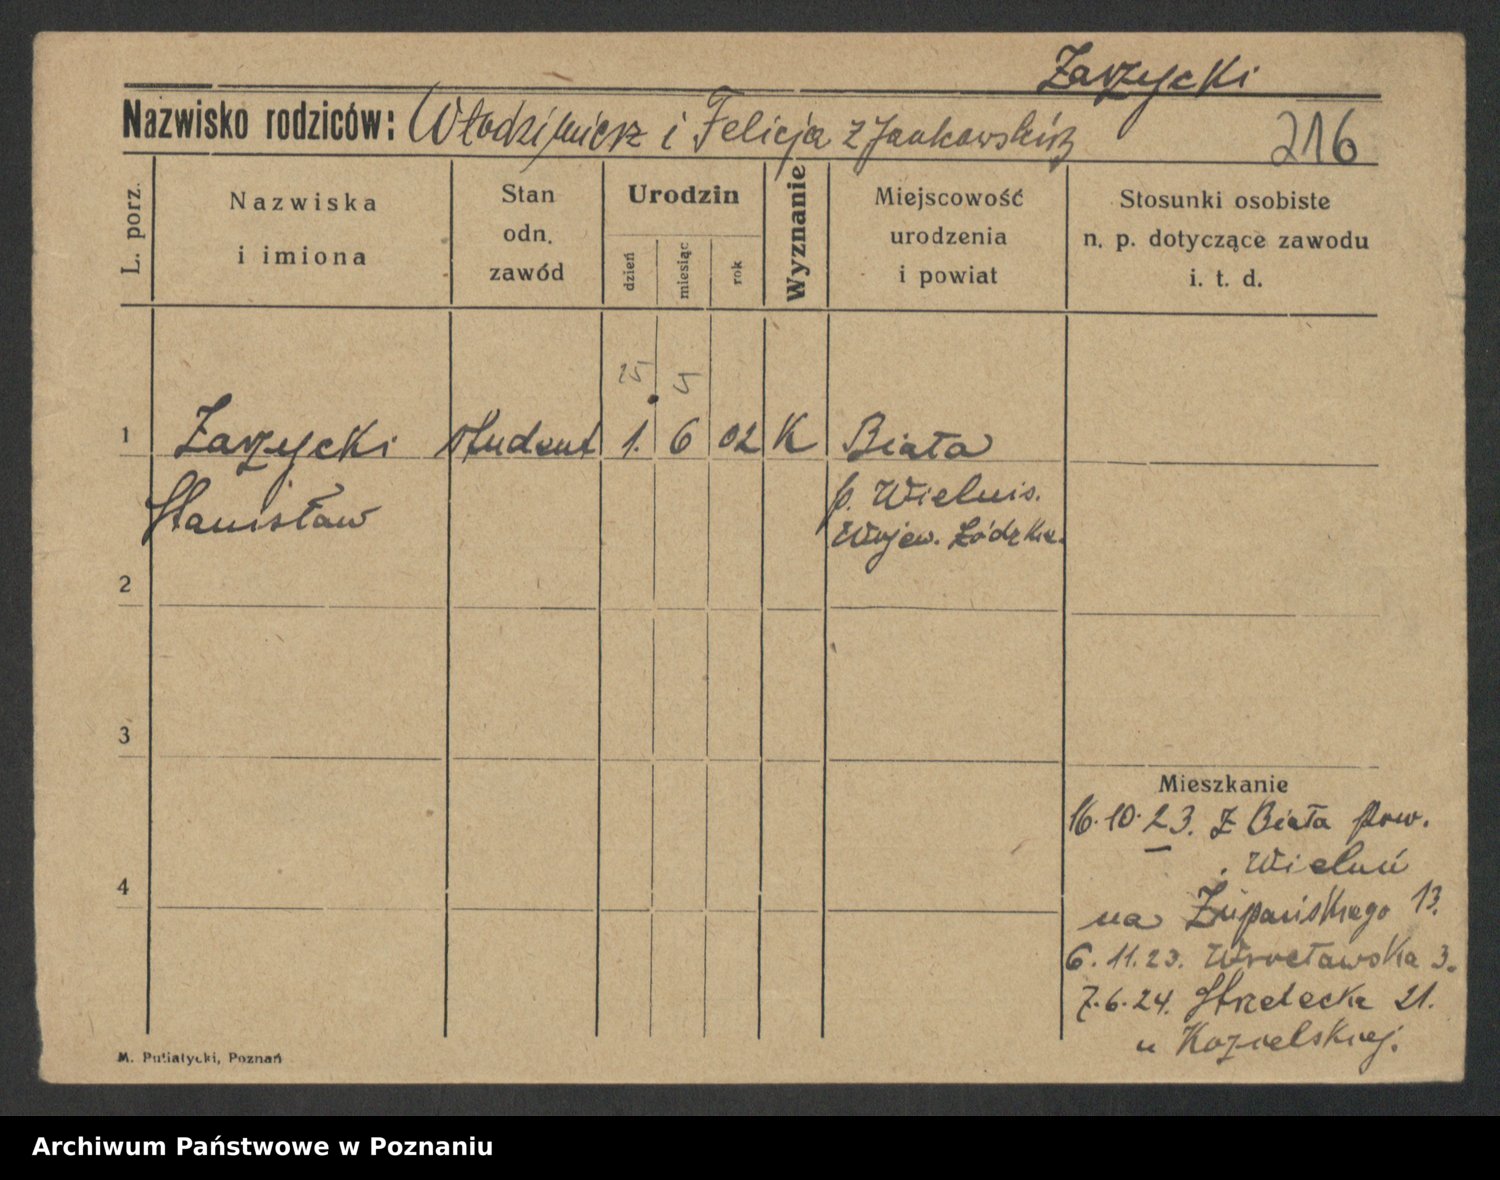 Zarzycki
Nazwisko rodziców: Włodzimierz i Felicja z Jankowskich
216
L. porz.
Nazwiska
i imiona
Stan
odn.
zawód
Urodzin
dzień
miesiąc
rok
Wyznanie
Miejscowość
urodzenia
i powiat
Stosunki osobiste
n. p. dotyczące zawodu
i. t. d.
25 4
1 Zarzycki student 1. 6 02 K Biała
Stanisław
p. Wieluń.
Wojew. Łódzkie.
2
3
4
Mieszkanie
16.10.23. z Biała pow.
Wieluń
na Żupańskiego 13.
6.11.23. Wrocławska 3.
7.6.24. Strzelecka 21.
u Kozielskiej.
M. Putiatycki, Poznań
Archiwum Państwowe w Poznaniu